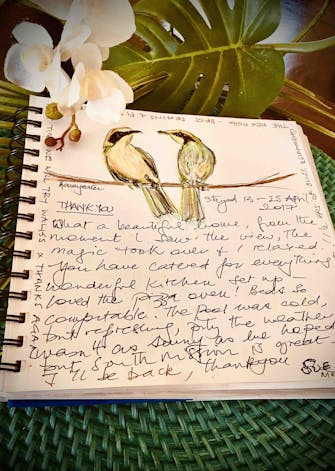 Honeyeater
THANK YOU
Stayed 13 - 25 April
2017
What a beautiful home, from the
moment I saw the view, the
magic took over & I relaxed.
You have catered for everything
wonderful kitchen set up -
loved the pizza oven! Beds so
comfortable. The pool was cold,
but refreshing, pity the weather
wasn't as sunny as we hoped
but South Mission is great -
I'll be back, Thankyou
Sue
THANKS AGAIN